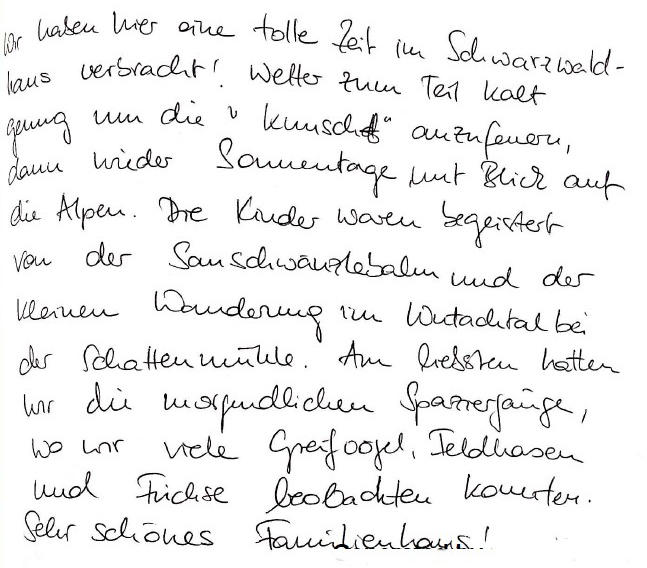 Wir haben hier eine tolle Zeit im Schwarzwald-
haus verbracht! Wetter zum Teil kalt
genug um die "Kunscht" anzufeuern,
dann wieder Sonnentage mit Blick auf
die Alpen. Die Kinder waren begeistert
von der Sauschwänzlebahn und der
kleinen Wanderung im Wutachtal bei
der Schattenmühle. Am liebsten hatten
wir die morgendlichen Spaziergänge,
wo wir viele Greifvögel, Feldhasen
und Füchse beobachten konnten.
Sehr schönes Familienhaus!